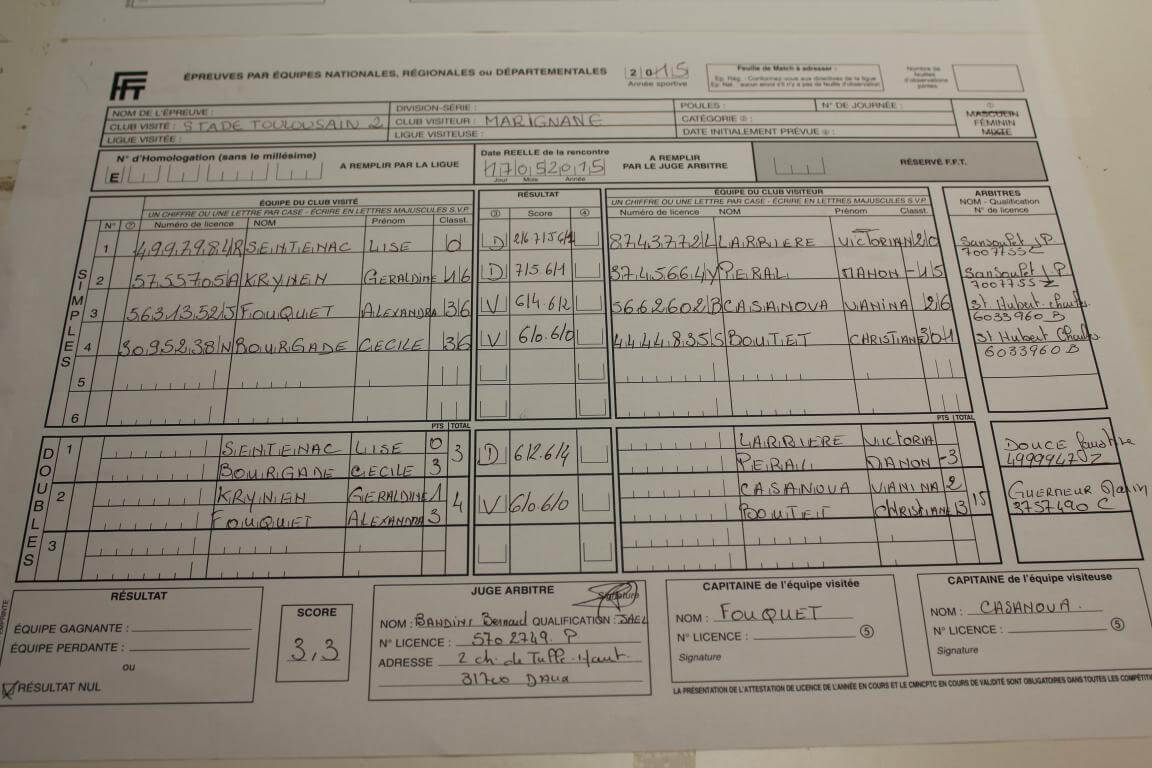 FFT
ÉPREUVES PAR ÉQUIPES NATIONALES, RÉGIONALES ou DÉPARTEMENTALES
2015
Année sportive
Feuille de Match à adresser :
Nombre de feuilles d'observations jointes
NOM DE L'ÉPREUVE :
DIVISION-SÉRIE :
POULES :
N° DE JOURNÉE :
CLUB VISITÉ : STADE TOULOUSAIN 2
CLUB VISITEUR : MARIGNANE
CATÉGORIE
LIGUE VISITÉE :
LIGUE VISITEUSE :
DATE INITIALEMENT PRÉVUE
MASCULIN
FÉMININ
MIXTE
N° d'Homologation (sans le millésime)
E
A REMPLIR PAR LA LIGUE
Date REELLE de la rencontre
17052015
Jour Mois Année
A REMPLIR PAR LE JUGE ARBITRE
RÉSERVÉ F.F.T.
ÉQUIPE DU CLUB VISITÉ
RÉSULTAT
ÉQUIPE DU CLUB VISITEUR
ARBITRES
NOM - Qualification
N° de licence
UN CHIFFRE OU UNE LETTRE PAR CASE - ÉCRIRE EN LETTRES MAJUSCULES S.V.P.
UN CHIFFRE OU UNE LETTRE PAR CASE - ÉCRIRE EN LETTRES MAJUSCULES S.V.P.
N° ② Numéro de licence NOM Prénom Classt. ③ Score ④ Numéro de licence NOM Prénom Classt.
SIMPLES
1 4997984R SEINTEINAC LISE 0 D 8743772L LARRIERE VICTORIAN 2/0 Sansoufet J.P 7007755C
2 5755705A KRYNEN GERALDINE 1/6 D 7/5.6/1 3745664Y PERAL MANON -15 Sansoufet J.P 7007755
3 5631352J FOUQUET ALEXANDRA 3/6 V 6/4.6/2 5662602B CASANOVA VANINA 2/6 St Hubert 6033960 B
4 3095238N BOURGADE CECILE 3/6 V 6/0.6/0 4444835S BOUTET CHRISTIANE 30/1 St Hubert 6033960 B
5
6
PTS TOTAL
PTS TOTAL
DOUBLES
1 SEINTEINAC LISE 0 3 D 6/2.6/4 LARRIERE VICTORIA
BOURGADE CECILE 3 PERAL MANON -3
DOUCE 4999947 Z
2 KRYNEN GERALDINE 1 4 V 6/0.6/0 CASANOVA VANINA 2 15
FOUQUET ALEXANDRA 3 BOUTET CHRISTIANE 13
GUERNEUR 2757490 C
3
RÉSULTAT
ÉQUIPE GAGNANTE :
ÉQUIPE PERDANTE :
ou
RÉSULTAT NUL
SCORE
3,3
JUGE ARBITRE
Signature
NOM : BANDINI Bernard QUALIFICATION : JAE2
N° LICENCE : 5702749. P
ADRESSE 2 ch. de Tuffe-Haut
CAPITAINE de l'équipe visitée
NOM : FOUQUET
N° LICENCE : ⑤
Signature
CAPITAINE de l'équipe visiteuse
NOM : CASANOVA.
N° LICENCE : ⑤
Signature
LA PRÉSENTATION DE L'ATTESTATION DE LICENCE DE L'ANNÉE EN COURS ET LE CMNCPTC EN COURS DE VALIDITÉ SONT OBLIGATOIRES DANS TOUTES LES